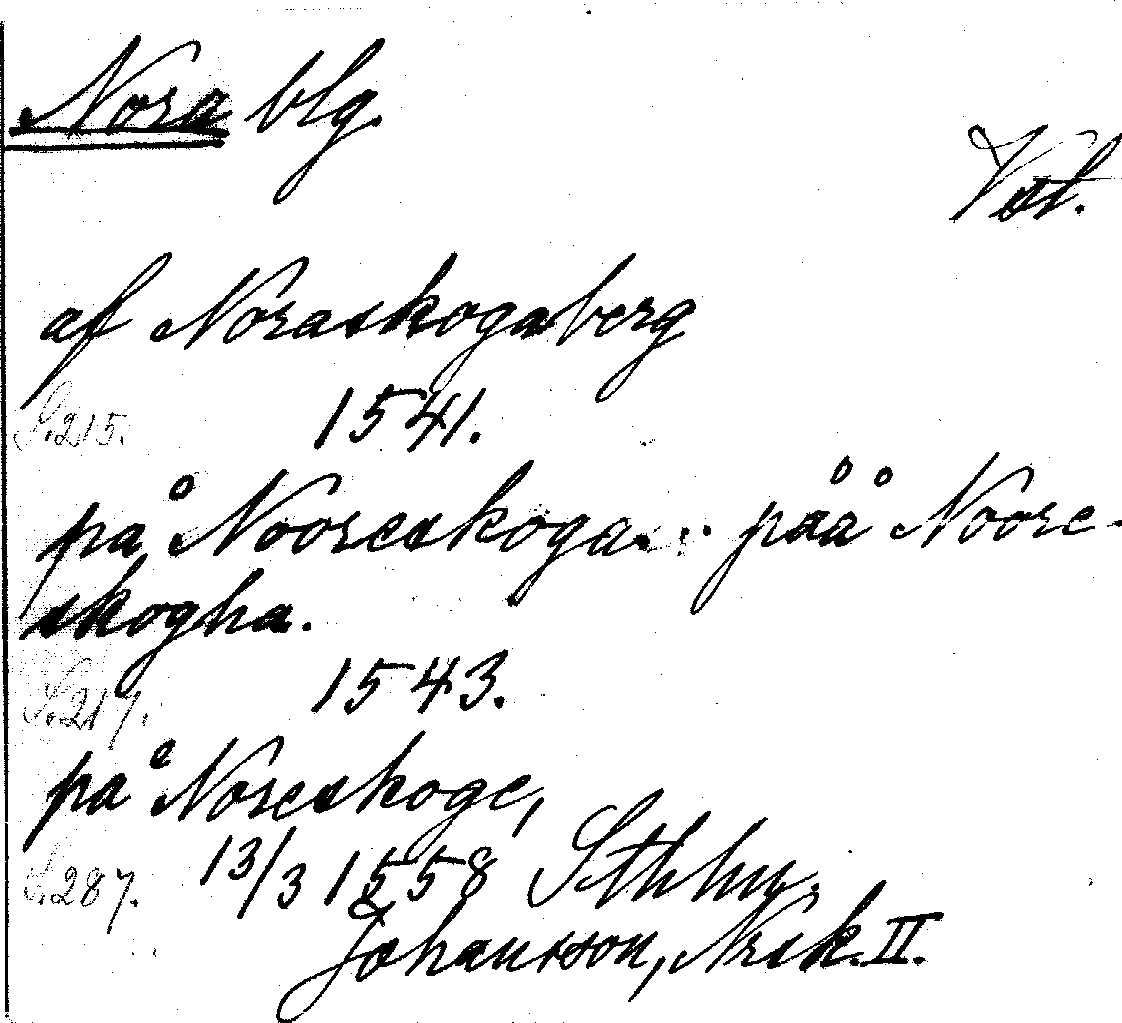 Nora blg.
Vstl.
af Noraskogaberg
S.215. 1541.
på Nooreskoga... påå Noore-
skogha.
S.217. 1543.
på Noreskoge,
S.287. 13/3 1558 Sthlm.
Johansson, Nrsk. II.